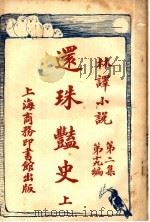 林譯小說
第二集
第十九編
還珠豔史 上
上海商務印書館出版